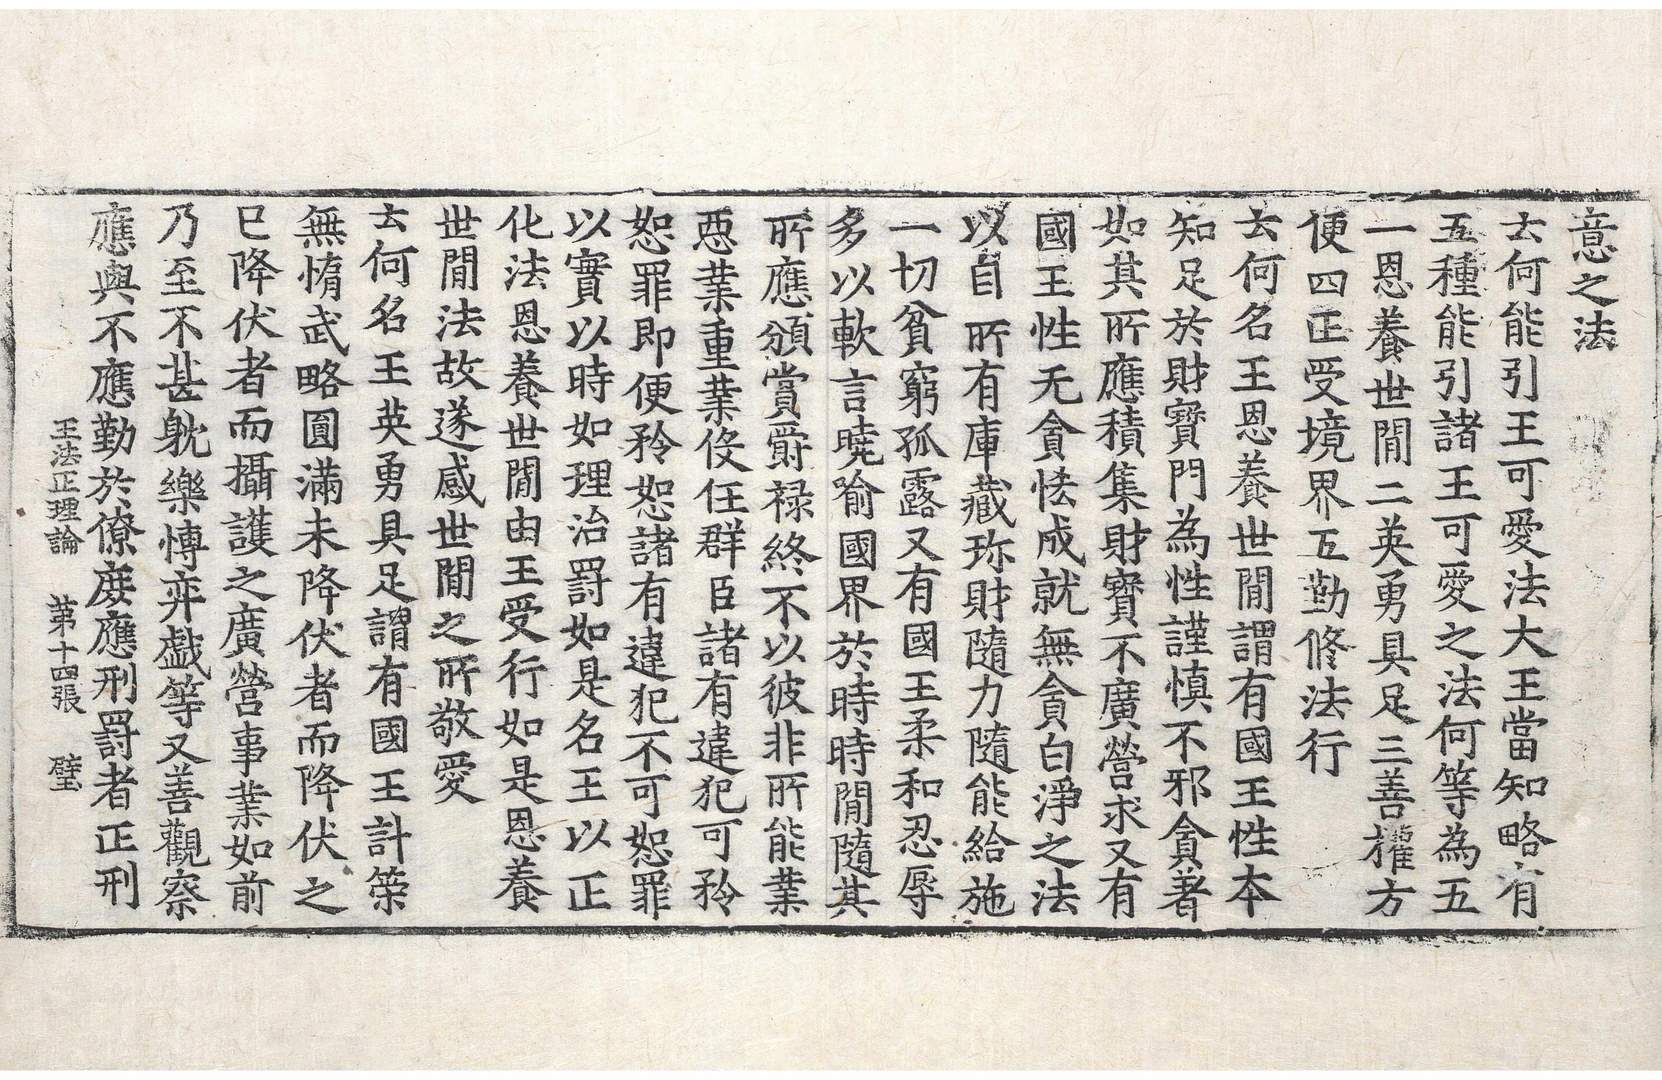 意之法
云何能引王可愛法大王當知略有
五種能引諸王可愛之法何等為五
一恩養世間二英勇具足三善權方
便四正受境界五勤修法行
云何名王恩養世間謂有國王性本
知足於財寶門為性謹慎不邪貪著
如其所應積集財寶不廣營求又有
國王性无貪恡成就無貪白淨之法
以自所有庫藏珎財隨力隨能給施
一切貧窮孤露又有國王柔和忍辱
多以軟言曉喻國界於時時間隨其
所應頒賞爵禄終不以彼非所能業
惡業重業役任群臣諸有違犯可矜
恕罪即便矜恕諸有違犯不可恕罪
以實以時如理治罰如是名王以正
化法恩養世間由王受行如是恩養
世間法故遂感世間之所敬愛
云何名王英勇具足謂有國王計策
無惰武略圓滿未降伏者而降伏之
已降伏者而攝護之廣營事業如前
乃至不甚躭樂愽弈戲等又善觀察
應與不應勤於僚庶應刑罰者正刑
王法正理論 第十四張 璧